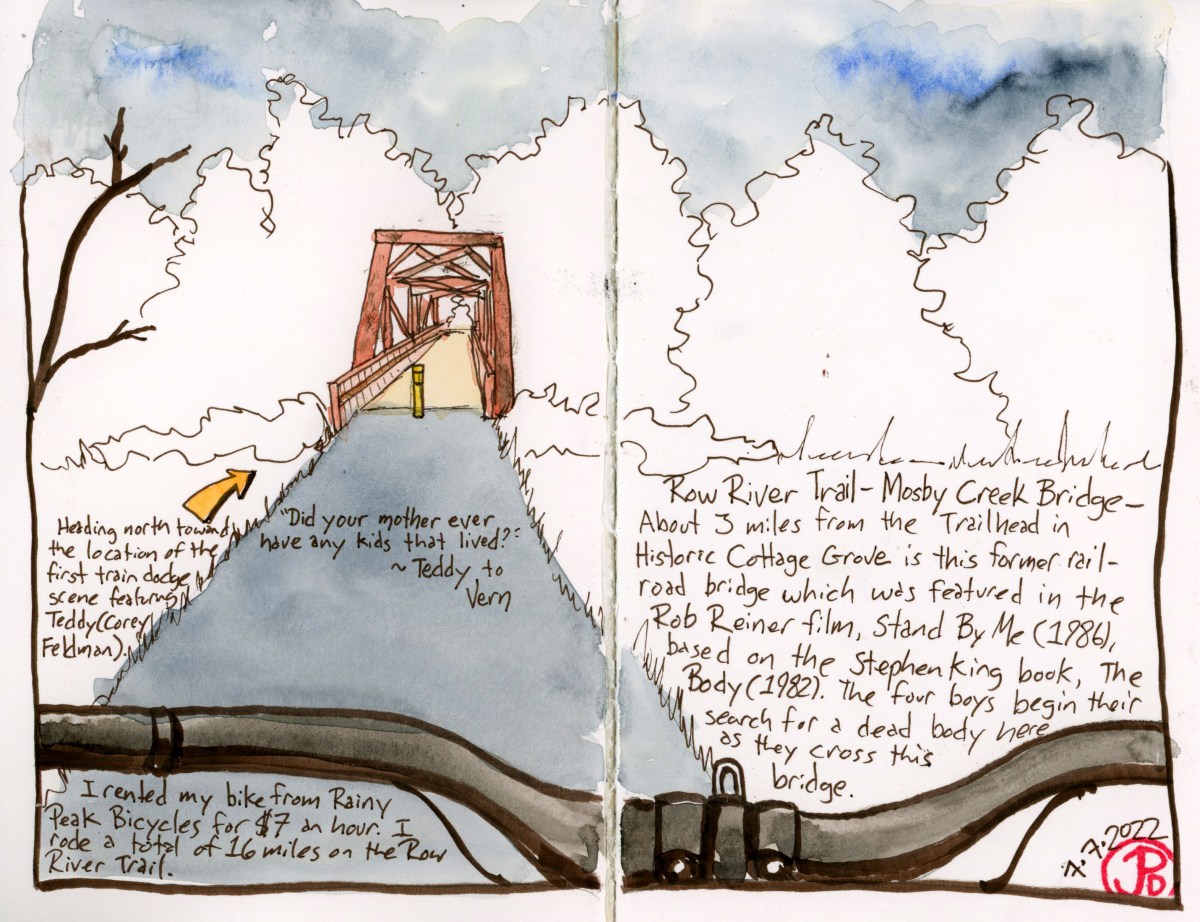 Heading north toward
the location of the
first train dodge
scene featuring
Teddy (Corey
Feldman).
"Did your mother ever
have any kids that lived?"
~ Teddy to
Vern
I rented my bike from Rainy
Peak Bicycles for $7 an hour. I
rode a total of 16 miles on the Row
River Trail.
Row River Trail - Mosby Creek Bridge -
About 3 miles from the Trailhead in
Historic Cottage Grove is this former rail-
road bridge which was featured in the
Rob Reiner film, Stand By Me (1986),
based on the Stephen King book, The
Body (1982). The four boys begin their
search for a dead body here
as they cross this
bridge.
7.2022
JPD